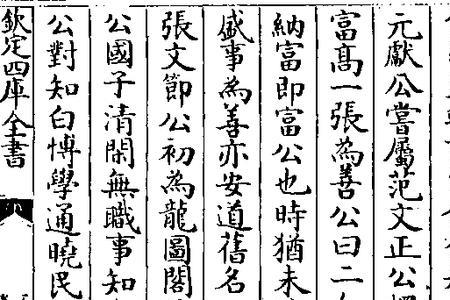 元獻公嘗屬范文正公
富髙一張為善公曰二
納富即富公也時猶未
盛事為善亦安道舊名
張文節公初為龍圖閣
公國子清閑無職事知
公對知白博學通曉民
欽定四庫全書